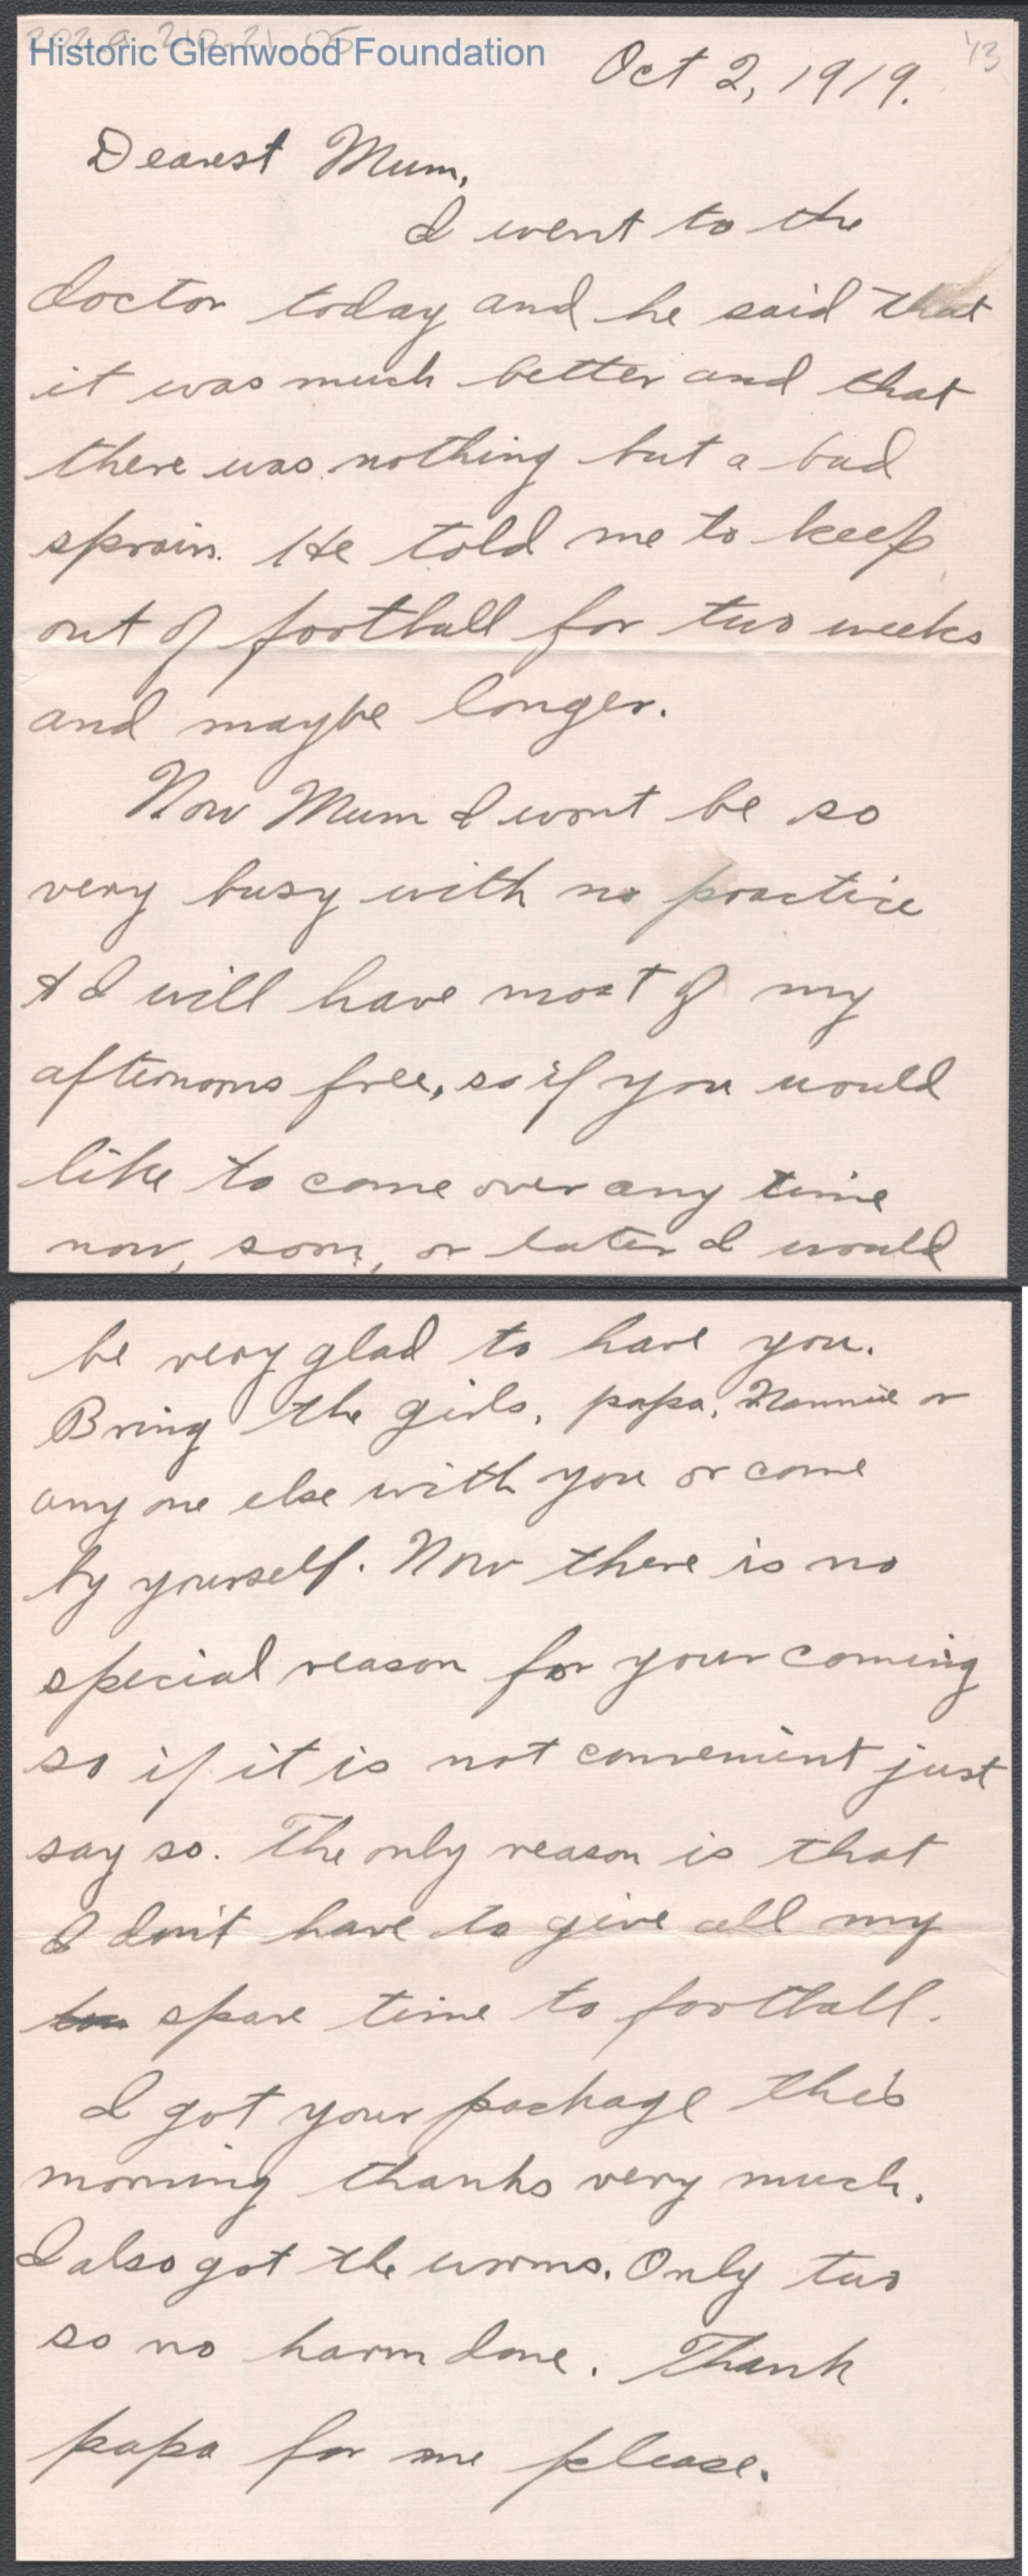 2020.210.21.05
Historic Glenwood Foundation
'13
Oct 2, 1919.
Dearest Mum,
I went to the
doctor today and he said that
it was much better and that
there was nothing but a bad
sprain. He told me to keep
out of football for two weeks
and maybe longer.
Now Mum I wont be so
very busy with no practice
& I will have most of my
afternoons free, so if you would
like to come over any time
now, soon, or later I would
be very glad to have you.
Bring the girls, papa, Nannie or
any one else with you or come
by yourself. Now there is no
special reason for your coming
so if it is not convenient just
say so. The only reason is that
I don't have to give all my
spare time to football.
I got your package this
morning thanks very much.
I also got the worms. Only two
so no harm done. Thank
papa for me please.